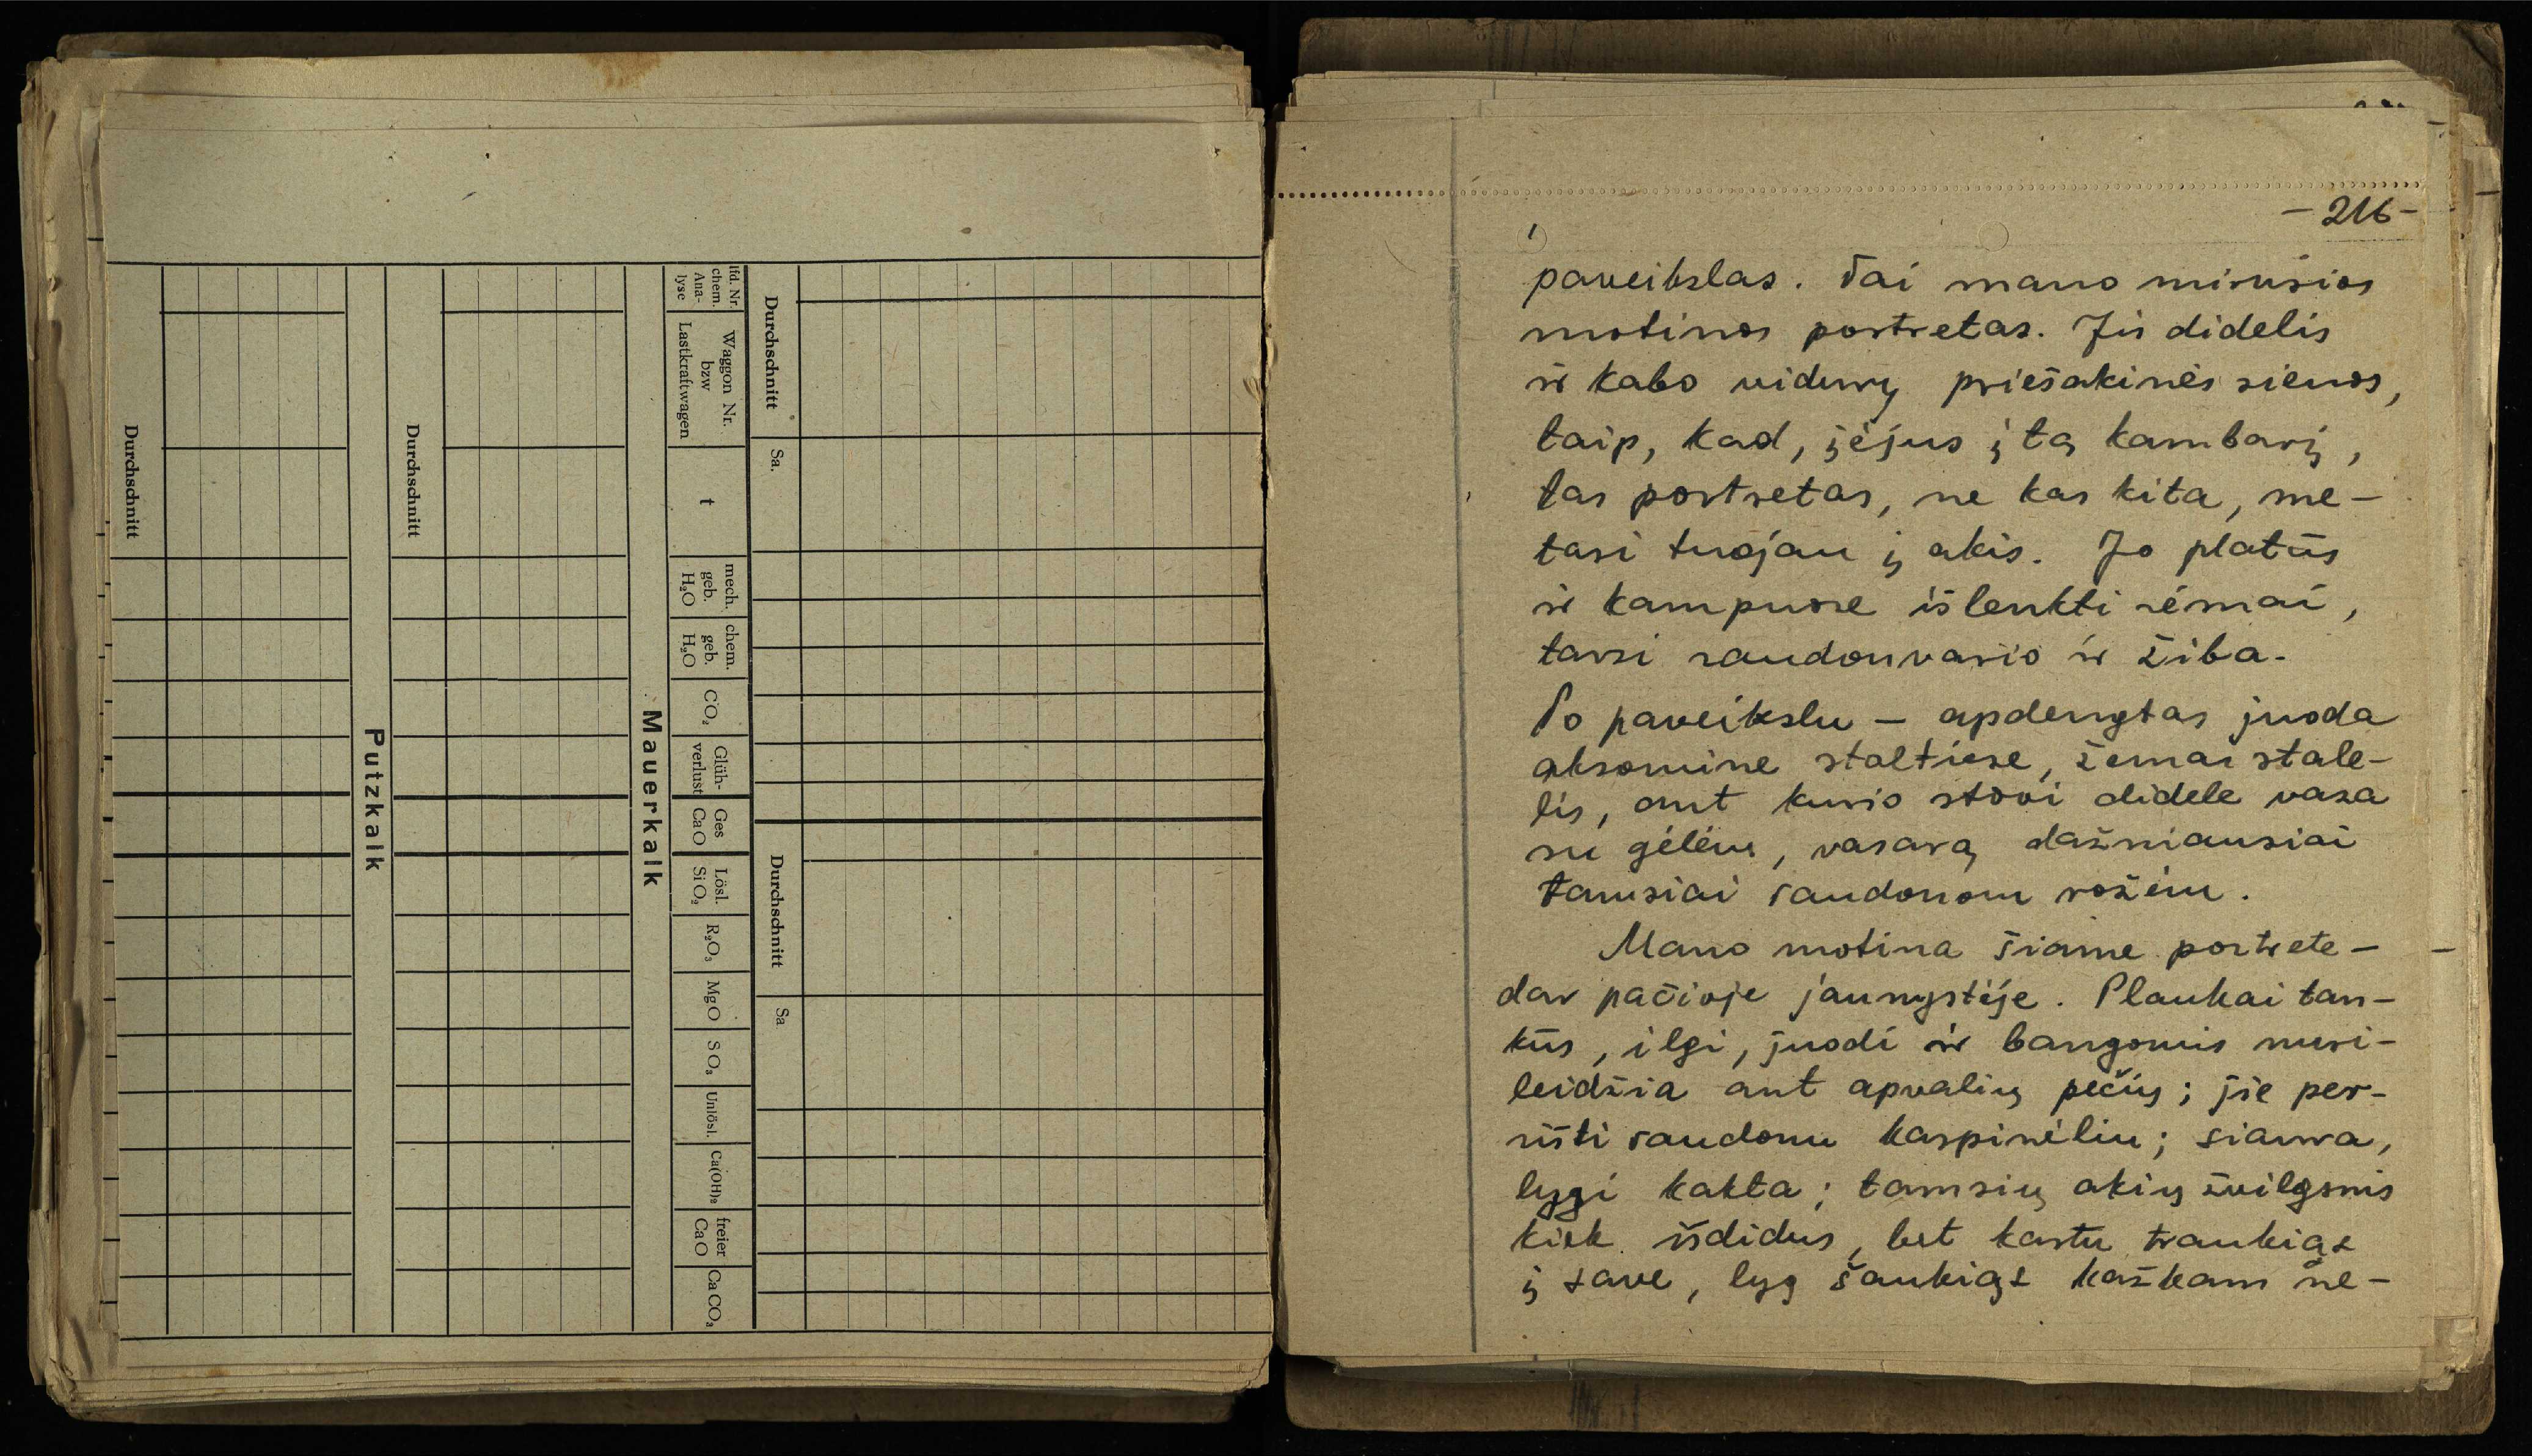 Durchschnitt
Putzkalk
Durchschnitt
Mauerkalk
lfd. Nr.
chem.
Ana-
lyse
Waggon Nr.
bzw
Lastkraftwagen
t
mech.
geb.
H₂O
chem.
geb.
H₂O
CO₂
Glüh-
verlust
Ges
CaO
Lösl.
SiO₂
R₂O₃
MgO
SO₃
Unlösl.
Ca(OH)₂
freier
CaO
CaCO₃
Durchschnitt
Sa.
Durchschnitt
Sa
-216-
paveikslas. Tai mano mirusios
motinos portretas. Jis didelis
ir kabo vidury priešakinės sienos,
taip, kad, įėjus į tą kambarį,
tas portretas, ne kas kita, me-
tasi tuojau į akis. Jo platūs
ir kampuose išlenkti rėmai,
tarsi raudonvario ir žiba.
Po paveikslu – apdengtas juoda
aksomine staltiese, žemas stale-
lis, ant kurio stovi didelė vaza
su gėlėm, vasarą dažniausiai
tamsiai raudonom rožėm.
Mano motina šiame portrete –
dar pačioje jaunystėje. Plaukai tan-
kūs, ilgi, juodi ir bangomis nusi-
leidžia ant apvalių pečių; jie per-
rišti raudonu kaspinėliu; siaura,
lygi kakta; tamsių akių žvilgsnis
kiek išdidus, bet kartu traukiąs
į save, lyg šaukiąs kažkam ne-